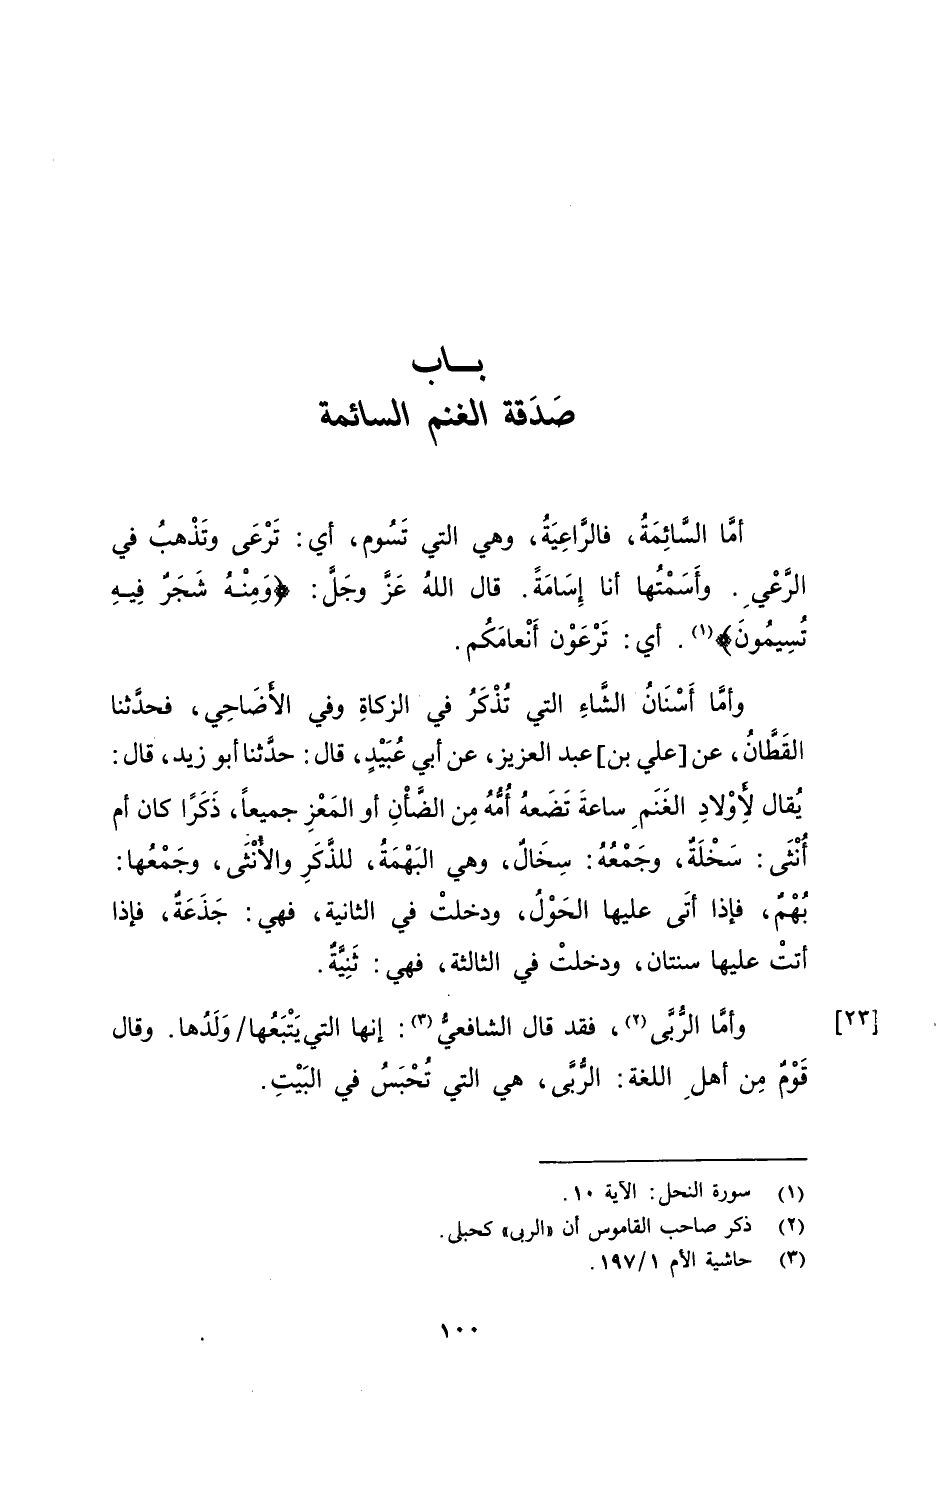 بـــاب
صَدَقة الغنم السائمة
أمَّا السَّائِمَةُ، فالرَّاعِيَةُ، وهي التي تَسُوم، أي: تَرْعَى وتَذْهبُ في
الرَّعْيِ. وأَسَمْتُها أنا إِسَامَةً. قال اللهُ عَزَّ وجَلَّ: ﴿وَمِنْـهُ شَجَرٌ فِيـهِ
تُسِيمُونَ﴾(١). أي: تَرْعَوْن أَنْعامَكُم.
وأمَّا أَسْنَانُ الشَّاءِ التي تُذْكَرُ في الزكاةِ وفي الأَضَاحِي، فحدَّثنا
القَطَّانُ، عن [علي بن] عبد العزيز، عن أبي عُبَيْدٍ، قال: حدَّثنا أبو زيد، قال:
يُقال لأَوْلادِ الغَنَمِ ساعةَ تَضَعهُ أُمُّهُ مِن الضَّأْنِ أو المَعْزِ جميعاً، ذَكَرًا كان أم
أُنْثَى: سَخْلَةٌ، وجَمْعُهُ: سِخَالٌ، وهي البَهْمَةُ، للذَّكَرِ والأُنْثَى، وجَمْعُها:
بُهْمٌ، فإذا أتَى عليها الحَوْلُ، ودخلتْ في الثانية، فهي: جَذَعَةٌ، فإذا
أتتْ عليها سنتان، ودخلتْ في الثالثة، فهي: ثَنِيَّةٌ.
[٢٣] وأمَّا الرُّبَّى(٢)، فقد قال الشافعيُّ(٣): إنها التي يَتْبَعُها/ وَلَدُها. وقال
قَوْمٌ مِن أهلِ اللغة: الرُّبَّى، هي التي تُحْبَسُ في البَيْتِ.
(١) سورة النحل: الآية ١٠.
(٢) ذكر صاحب القاموس أن «الربى» كحبلى.
(٣) حاشية الأم ١/١٩٧.
١٠٠